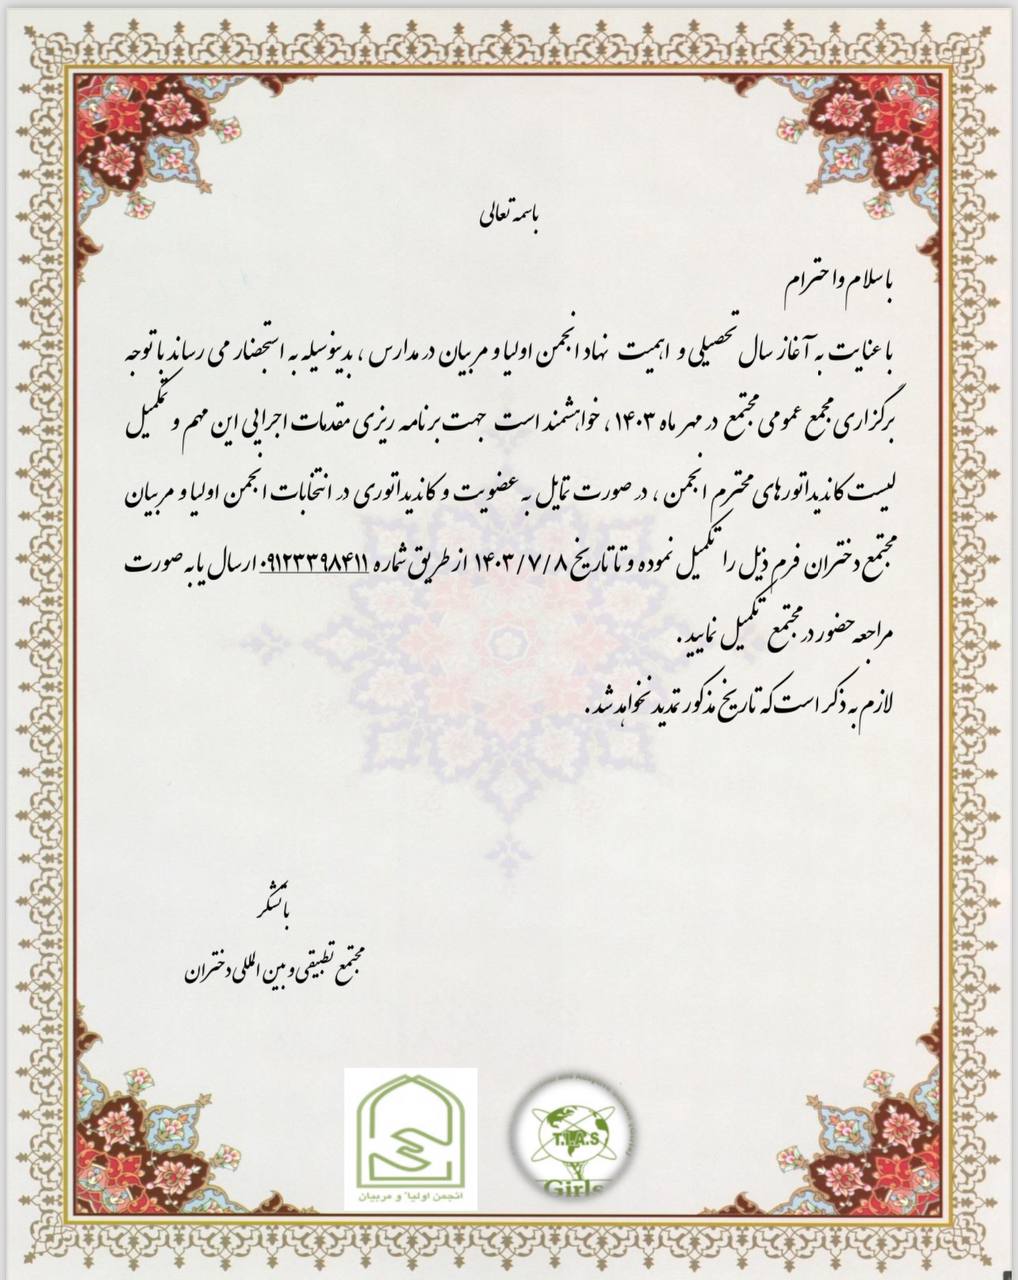 باسمه تعالی
با سلام و احترام
با عنایت به آغاز سال تحصیلی و اهمیت نهاد انجمن اولیا و مربیان در مدارس ، بدینوسیله به استحضار می رساند با توجه
برگزاری مجمع عمومی مجتمع در مهر ماه ۱۴۰۳ ، خواهشمند است جهت برنامه ریزی مقدمات اجرایی این مهم و تکمیل
لیست کاندیداتورهای محترم انجمن ، در صورت تمایل به عضویت و کاندیداتوری در انتخابات انجمن اولیا و مربیان
مجتمع دختران فرم ذیل را تکمیل نموده و تا تاریخ ۱۴۰۳/۷/۸ از طریق شماره ۰۹۱۲۳۳۹۸۴۱۱ ارسال یا به صورت
مراجعه حضور در مجتمع تکمیل نمایید .
لازم به ذکر است که تاریخ مذکور تمدید نخواهد شد .
با تشکر
مجتمع تطبیقی و بین المللی دختران
T.I.A.S
Girls
انجمن اولیاء و مربیان